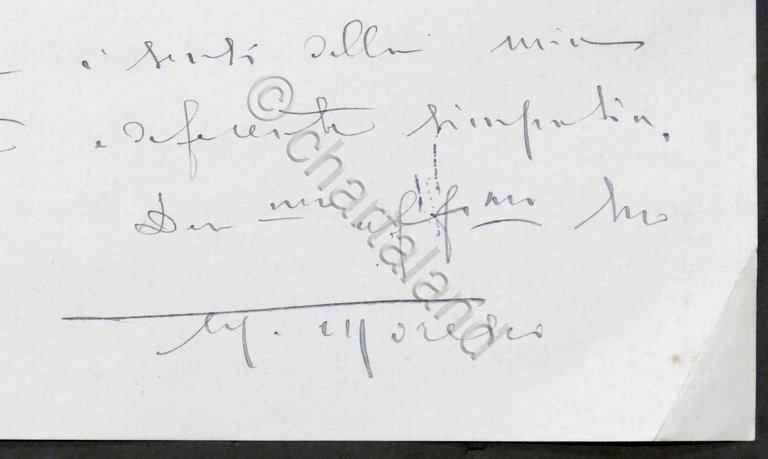 i sensi della mia
e deferente simpatia.
Dev mo aff mo Suo
M. Moresco
© chartaland